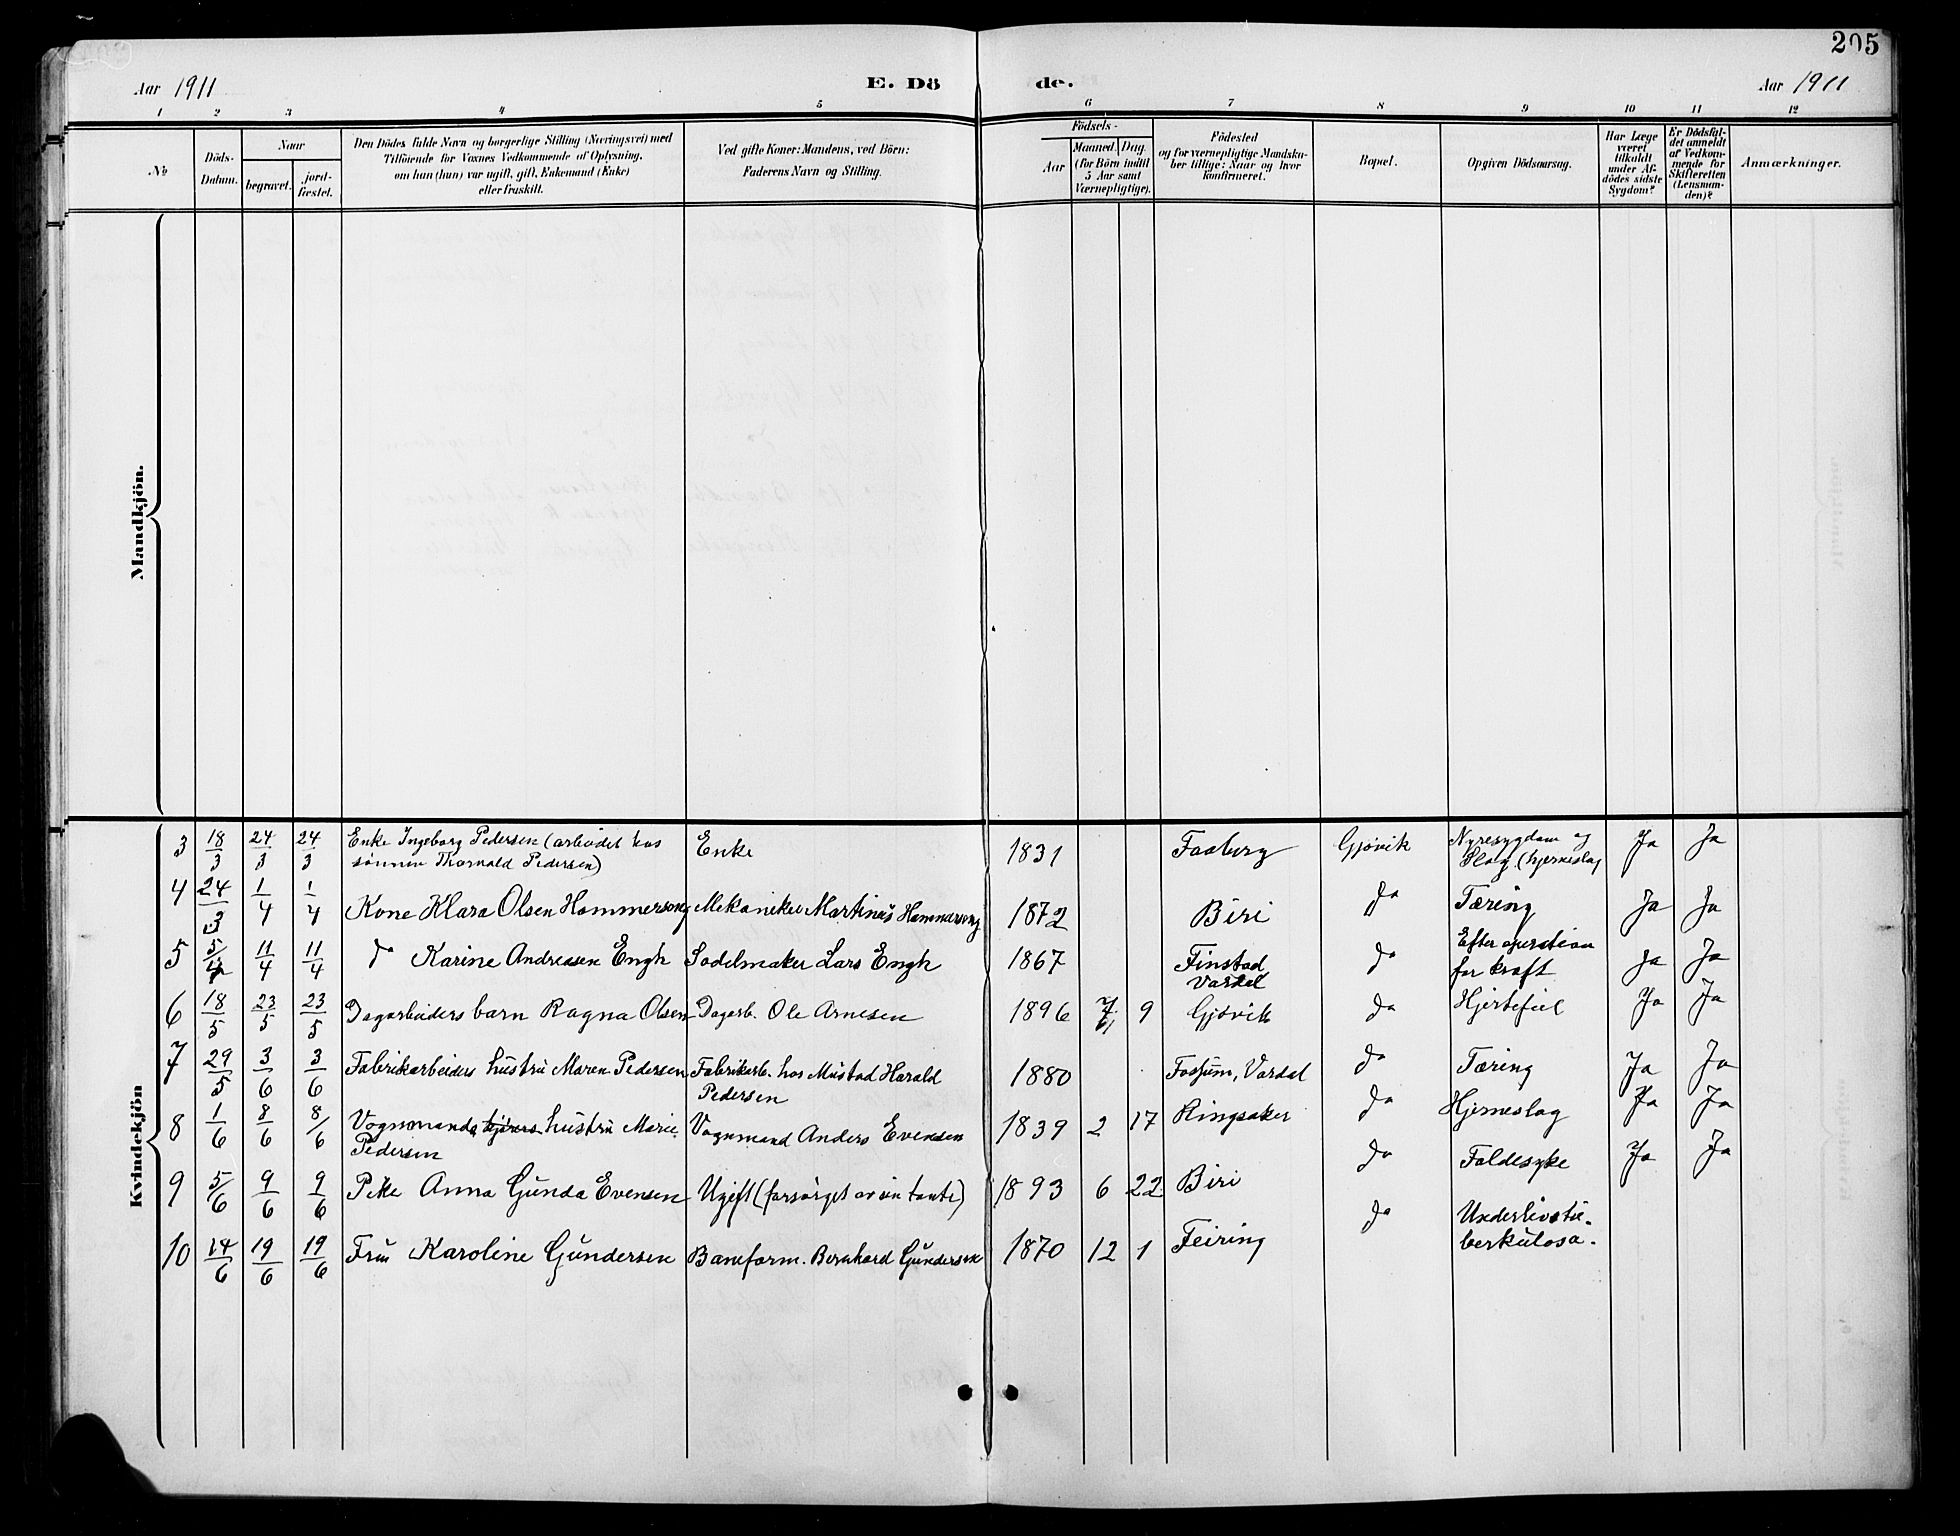 205
Aar 1911 E. Dö de. Aar 1911
1 2 3 4 5 6 7 8 9 10 11 12
No
Döds-
Datum.
Naar
begravet.
jord-
fæstet.
Den Dödes fulde Navn og borgerlige Stilling (Næringsvei) med
Tilföiende for Voxnes Vedkommende af Oplysning,
om han (hun) var ugift, gift, Enkemand (Enke)
eller fraskilt.
Ved gifte Koner: Mandens, ved Börn:
Faderens Navn og Stilling.
Födsels-
Aar
Maaned. Dag.
(for Börn indtil
5 Aar samt
Værnepligtige).
Födested
og for værnepligtige Mandska-
ber tillige: Naar og hvor
konfirmeret.
Bopæl.
Opgiven Dödsaarsag.
Har Læge
været
tilkaldt
under Af-
dödes sidste
Sygdom?
Er Dödsfal-
det anmeldt
af Vedkom-
mende for
Skifteretten
(Lensman-
den)?
Anmærkninger.
Mandkjön.
Kvindekjön
3 18/3 24/3 24/3 Enke Ingeborg Pedersen (arbeidet hos
sønnen Thorvald Pedersen) Enke 1831 Faaberg Gjøvik Nyresygdom og
Slag (hjerneslag Ja Ja
4 24/3 1/4 1/4 Kone Klara Olsen Hammerseng Mekaniker Martinus Hammerseng 1872 Biri do Tæring Ja Ja
5 5/4 11/4 11/4 do Karine Andreasen Engh Sadelmaker Lars Engh 1867 Finstad
Vardal do Efter operation
for kræft Ja Ja
6 18/5 23/5 23/5 Dagarbeiders barn Ragna Olsen Dagarb. Ole Arnesen 1896 9 Gjøvik do Hjertefeil Ja Ja
7 29/5 3/6 3/6 Fabrikarbeiders hustru Maren Pedersen Fabrikarb. hos Mustad Harald
Pedersen 1880 Fossum, Vardal do Tæring Ja Ja
8 1/6 8/6 8/6 Vognmands hustru Marie
Pedersen Vognmand Anders Evensen 1839 2 17 Ringsaker do Hjerneslag Ja Ja
9 5/6 9/6 9/6 Pike Anna Gunda Evensen Ugift (forsørget av sin tante) 1893 6 22 Biri do Faldesyke Ja Ja
10 14/6 19/6 19/6 Fru Karoline Gundersen Baneform. Bernhard Gundersen 1870 12 1 Feiring do Underlivstu-
berkulosa.